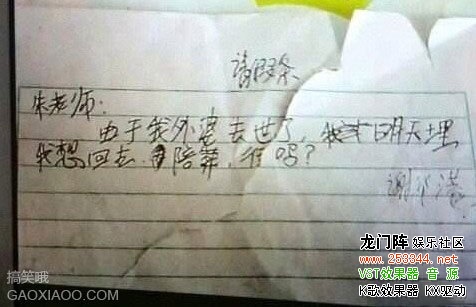 请假条
朱老师:
由于我外婆去世了,我才明天埋
我想回去 陪葬,行吗?
谢
搞笑哦
GAOXIAOO.COM
龙门阵 娱乐社区
www.253344.net
VST效果器 音 源
K歌效果器 KX驱动